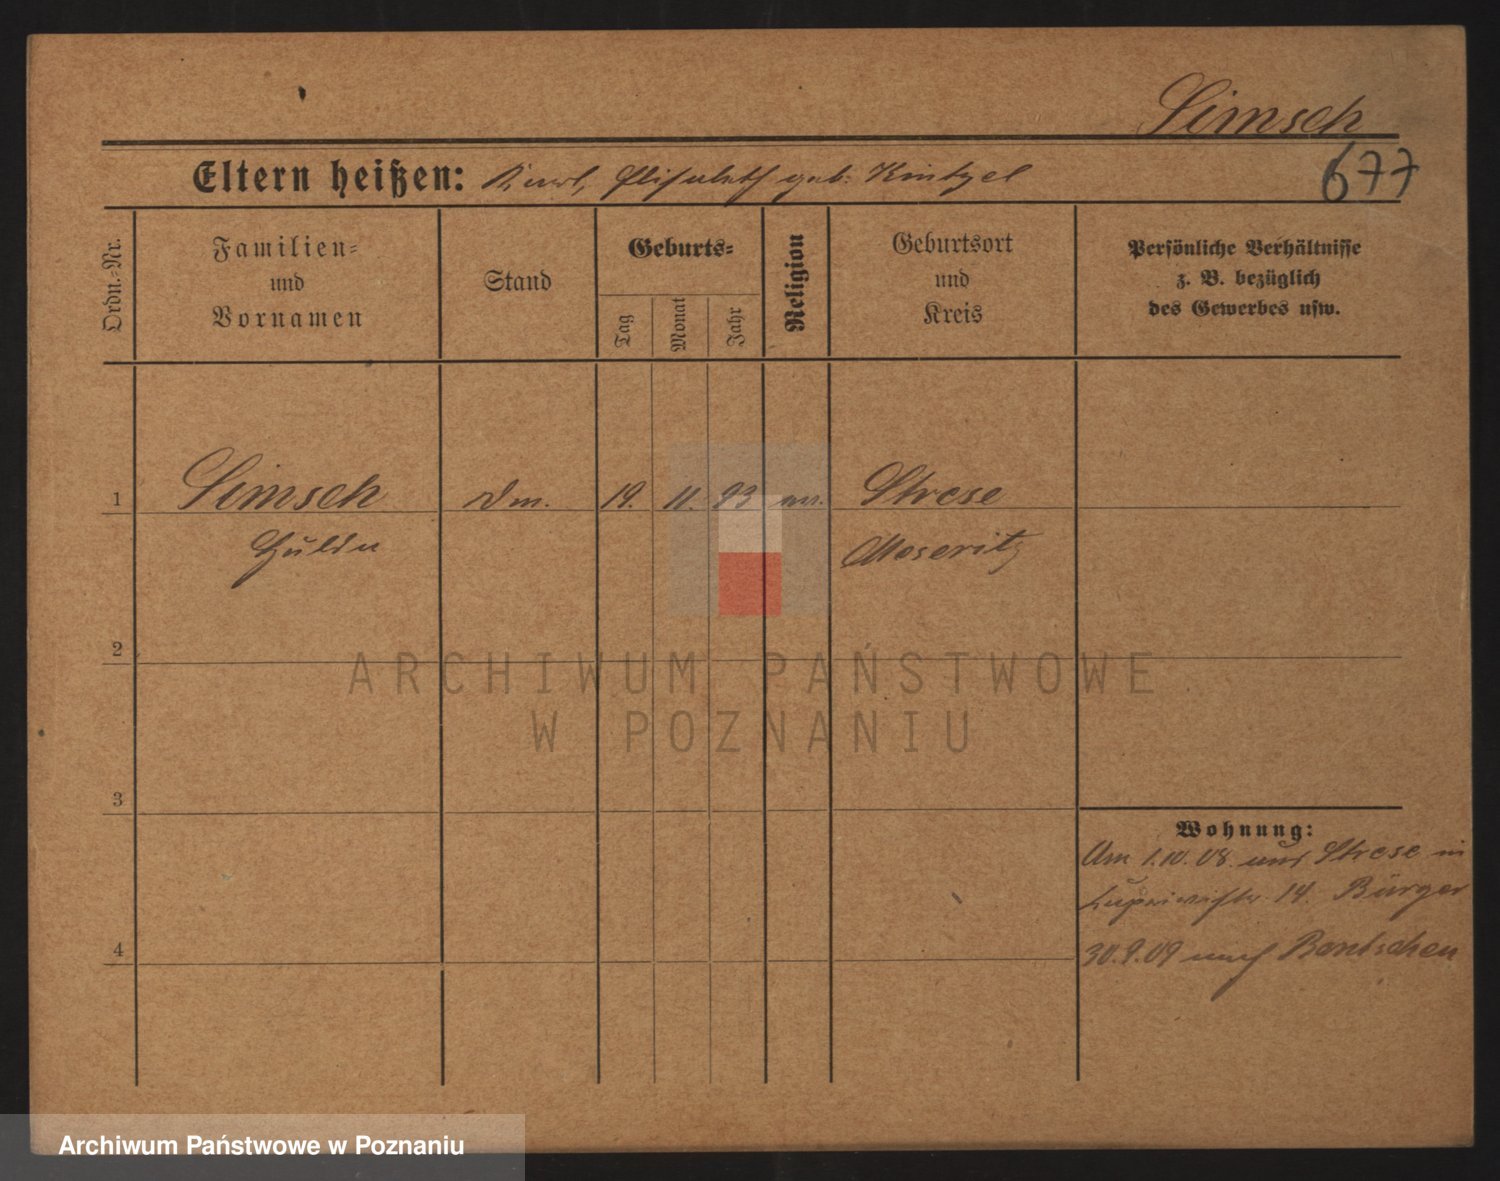 Simsch
Eltern heißen: Karl, Elisabeth geb. Kintzel
677
Ordn.-Nr.
Familien-
und
Vornamen
Stand
Geburts-
Tag
Monat
Jahr
Religion
Geburtsort
und
Kreis
Persönliche Verhältnisse
z. B. bezüglich
des Gewerbes usw.
1 Simsch Dm. 19. 11. 93 ev. Strese
Hulda Meseritz
2
3
4
Wohnung:
Am 1.10.08. aus Strese in
14. Bürger
30.9.09 nach Bentschen
ARCHIWUM PAŃSTWOWE
W POZNANIU
Archiwum Państwowe w Poznaniu